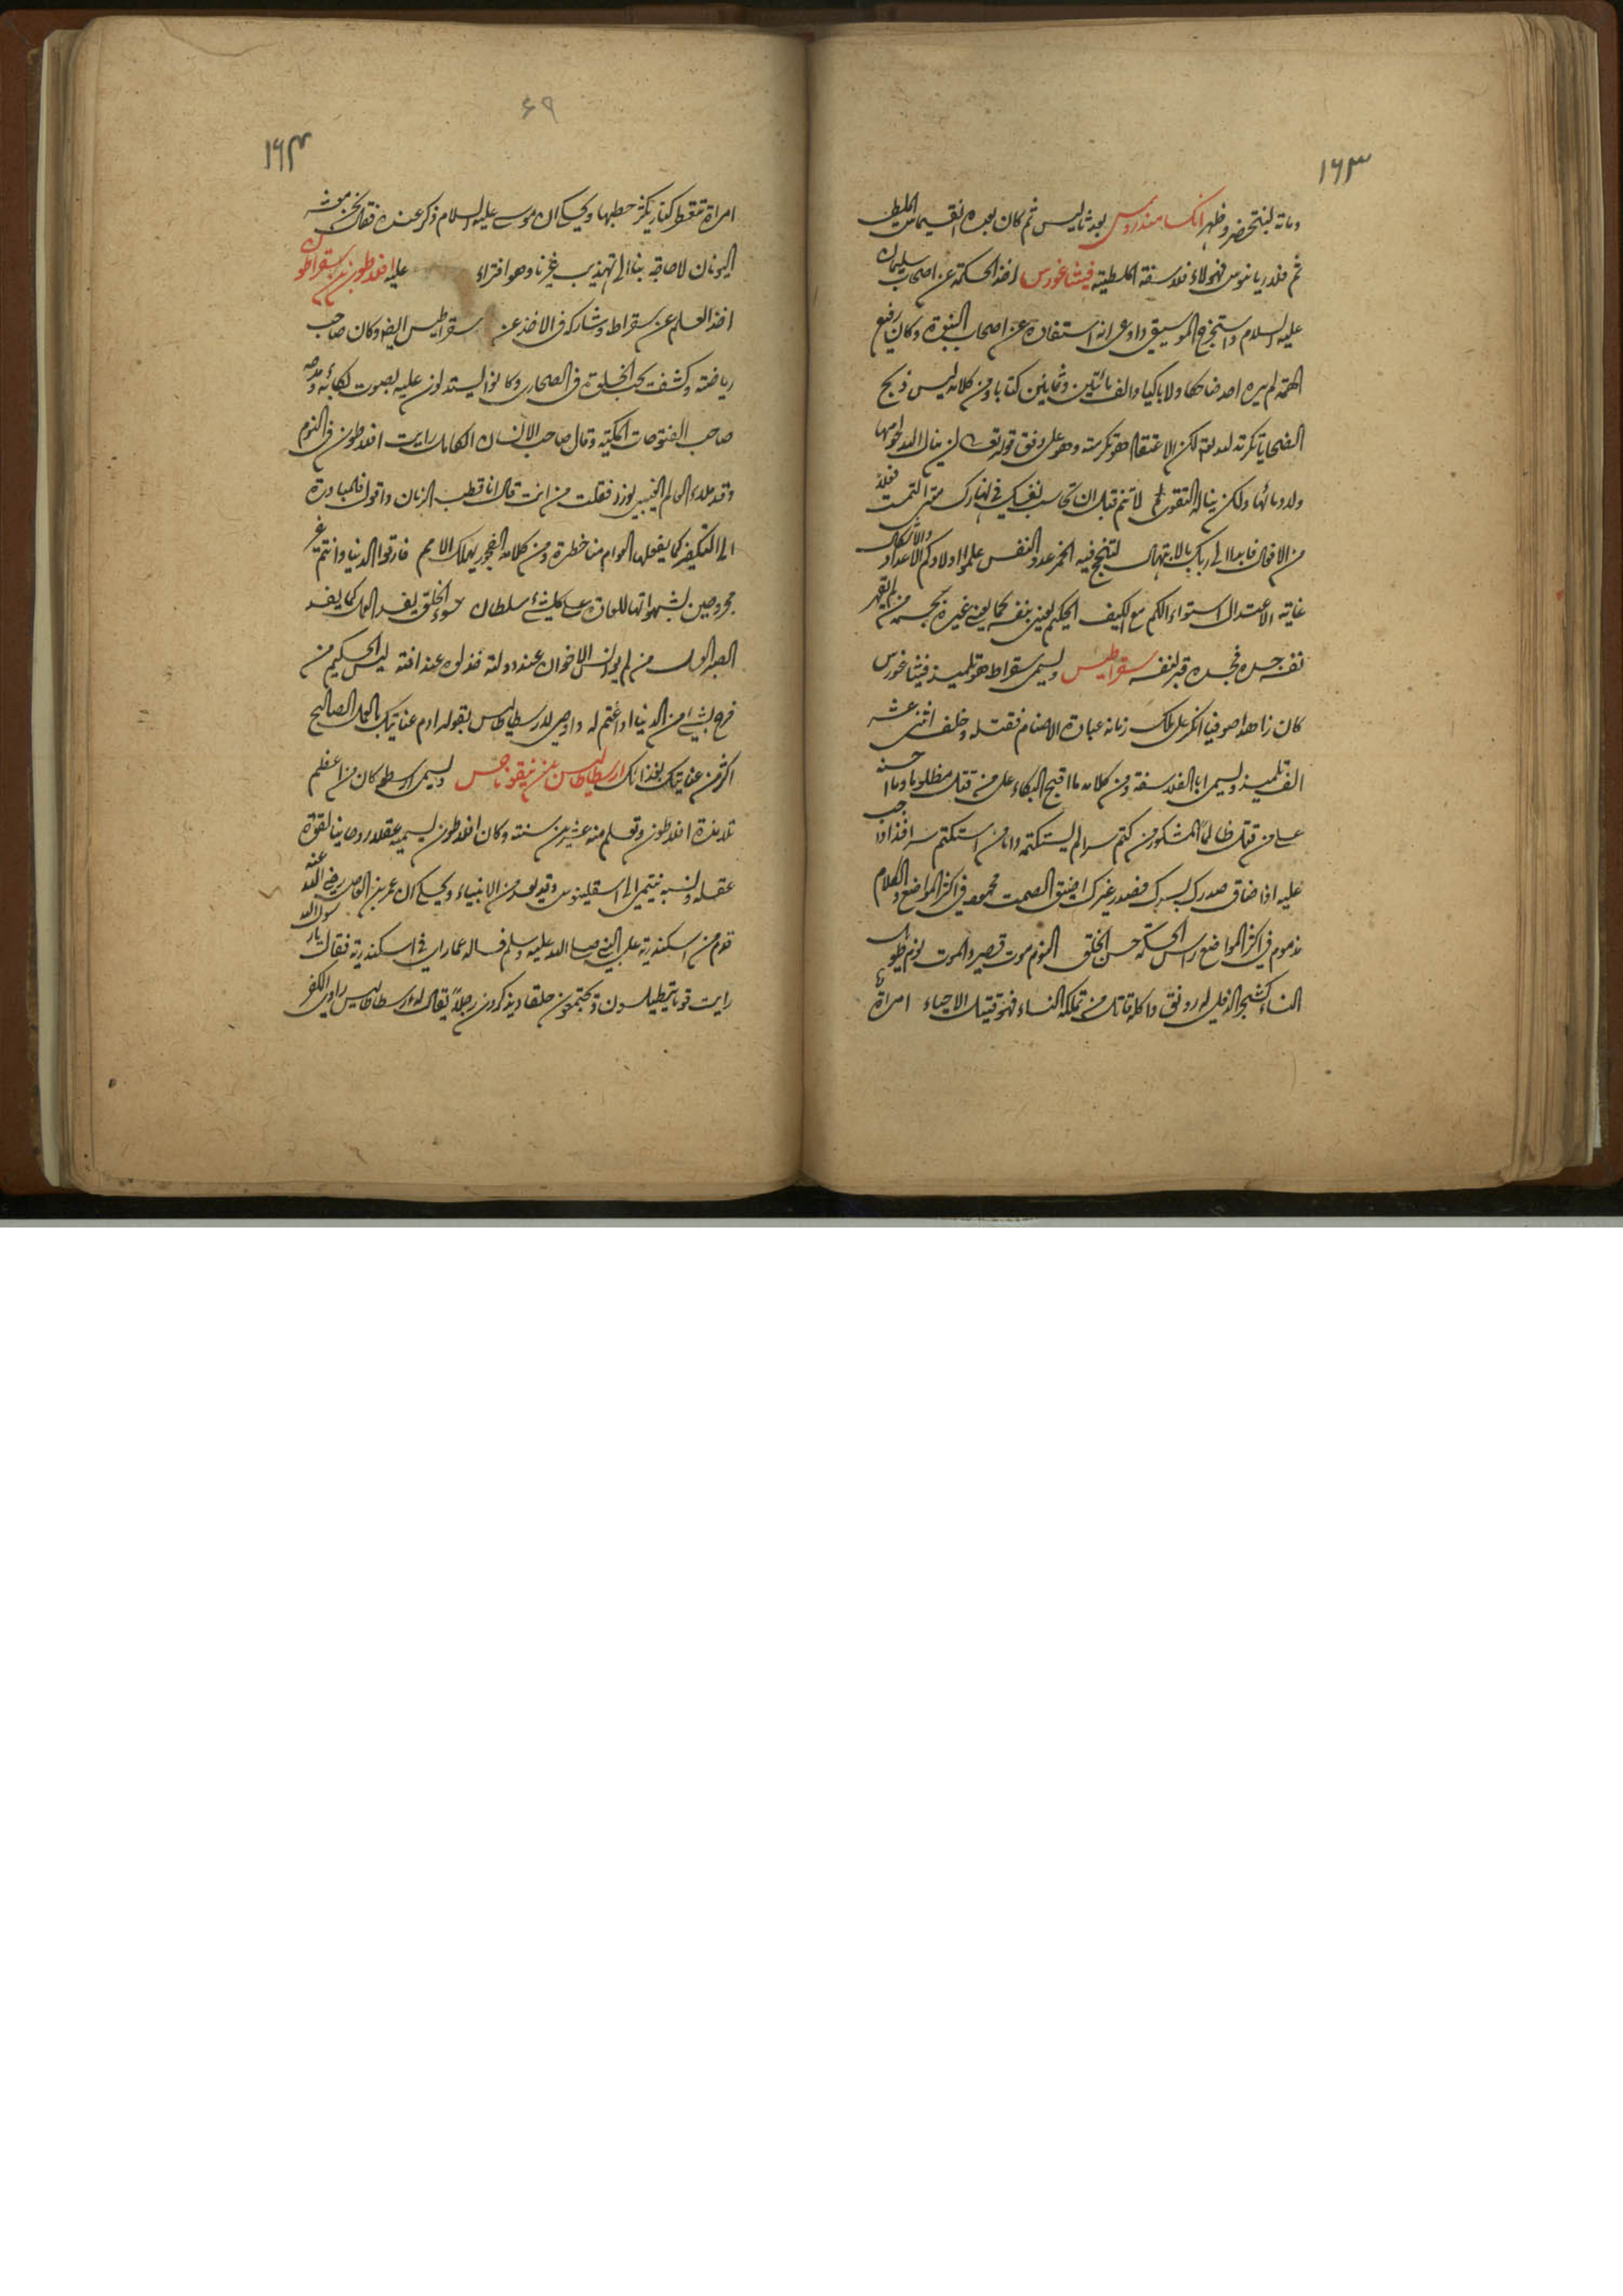 ١٦٣
ومائة لبختنصر وظهر انكسامندروس بعد ثاليس ثم كان بعده انقسيمانس الملطى
ثم فلاديانوس فهؤلاء فلاسفة الملطية فيثاغورس اخذ الحكمة عن اصحاب سليمان
عليه السلام واستخرج الموسيقى وادعى انه استفاده عن اصحاب النبوة وكان رفيع
الهمة لم يره احد ضاحكا ولا باكيا والف مائتين وثمانين كتابا ومن كلامه ليس ذبح
الضحايا تكرمة لله تعالى لكن الاعتقاد هو تكرمته وهو على وفق قوله تعالى لن ينال الله لحومها
ولا دمائها ولكن يناله التقوى لا تنم قبل ان تحاسب نفسك في نهارك متى التمست فعلا
من الافعال فابدا الى ربك بالابتهال لتنجح فيه الخمر عدو النفس علموا اولادكم الاعداد والاشكال
غاية الاعتدال استواء الكم مع الكيف الحكيم يعين بنفسه كما يعين غيره بجسمه من لم يقهر
نفسه جسده فجسده قبر لنفسه سقراطيس ويسمى سقراط هو تلميذ فيثاغورس
كان زاهدا صوفيا انكر على ملك زمانه عبادة الاصنام فقتله وخلف اثنى عشر
الف تلميذ ويسمى ابا الفلاسفة ومن كلامه ما اقبح البكاء على من قتل مظلوما وما احسنه
على من قتل ظالما المشكور من كتم سرا لم يستكتمه واما من استكتم سرا فذا واجب
عليه اذا ضاق صدرك بسرك فصدر غيرك اضيق الصمت محمود في اكثر المواضع والكلام
مذموم في اكثر المواضع راس الحكمة حسن الخلق النوم موت قصير والموت نوم طويل
النساء كشجر الدفلى له رونق واكله قاتل من تملكه النساء فهو قتيل الاحياء امراة
٦٩
١٦٤
امراة تتعطر كنار يكثر حطبها ويحكى ان موسى عليه السلام ذكر عنده فقال نحن معشر
اليونان لا حاجة بنا الى تهذيب غيرنا وهو افتراء عليه افلاطون بن سقراطون
اخذ العلم عن سقراط وشاركه فى الاخذ عن سقراطيس ايضا وكان صاحب
رياضة وكشف يحب الخلوة فى الصحارى وكانوا يستدلون عليه بصوت بكائه ومدحه
صاحب الفتوحات المكية وقال صاحب الانسان الكامل رايت افلاطون فى النوم
وقد ملاء العالم الغيبى نورا فقلت من انت قال انا قطب الزمان واقول فالمبادرة
الى التكفير كما يفعلها العوام مناخطرة ومن كلامه الفجور يهلك الامم فارقوا الدنيا وانتم غير
مجروحين بشهواتها للعادة على كل شئ سلطان سوء الخلق يفسد العمل كما يفسد
الصبر العسل من لم يواس الاخوان عند دولته خذلوه عند افته ليس الحكيم من
فرح بشئ من الدنيا او اغتم له واوصى لارسطاطاليس بقوله ادم عنايتك بالعمل الصالح
اكثر من عنايتك بغذائك ارسطاطاليس بن نيقوماخس ويسمى ارسطو كان من اعظم
تلامذة افلاطون وتعلم منه عشرين سنة وكان افلاطون يسميه عقلا روحانيا لقوة
عقله ونسبه ينتهى الى اسقلينوس وقيل هو من الانبياء ويحكى ان عمرو بن العاص رضى الله عنه
قدم من اسكندرية على النبى صلى الله عليه وسلم فساله عما راى فى اسكندرية فقال يا رسول الله
رايت قوما يتطيلسون ويجتمعون حلقا ويذكرون رجلا يقال له ارسطاطاليس راوى الكفر